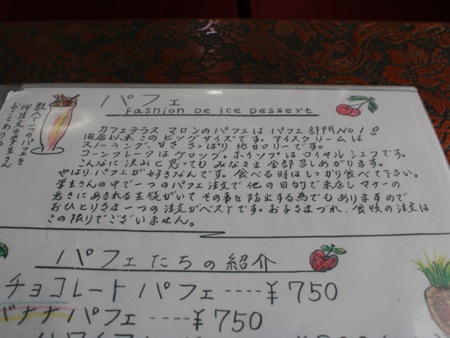 パフェ
Fashion De Ice Dessert
カフェテラス マロンのパフェは パフェ部門No1!
開店以来の ビッグサイズです。アイスクリームは
スノーキング、甘さ さっぱり 低カロリーです。
コーンフレークは ケロッグ。ホイップは ロイヤルシェフです。
こんなに 沢山と 思っても みなさま 全部召しあがります。
やはり パフェが 好きなんです。食べる時は しっかり食べて下さい。
学生さんの中で 一つのパフェ注文で 他の目的で来店し マナーの
悪さに あきれる主役がいて その事を防止する為でもありますので
おひとりさま 一つの注文がベストです。お子さまづれ、食後の注文は
この限りでございません。
数人で一つのパフェを
御注文の学生さん
おことわり
パフェたちの紹介
チョコレートパフェ----¥750
バナナパフェ----¥750